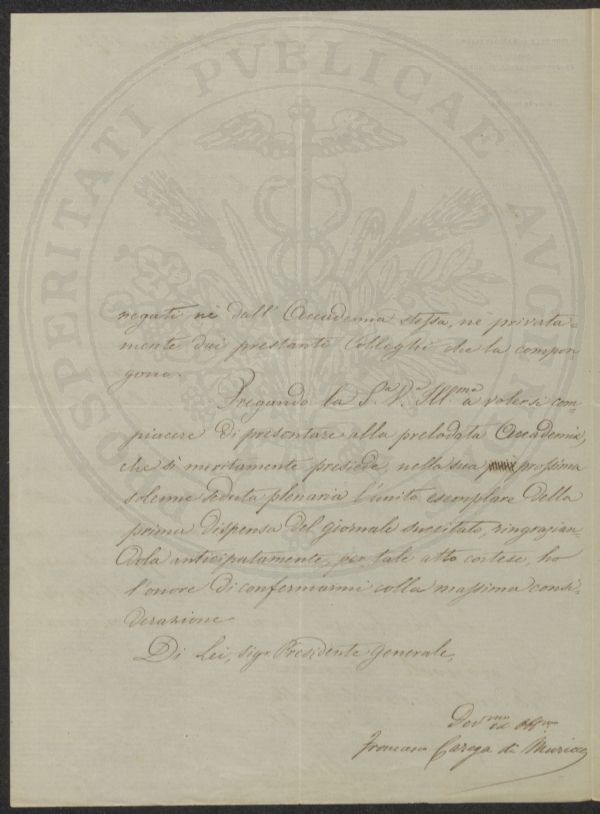 negati nè dall' Accademia stessa, nè privata-
mente dai prestanti Colleghi che la compon-
gono.
Pregando la S.ª V.ª Ill.ma a volersi com-
piacere di presentare alla prelodata Accademia,
che sì meritamente presiede, nella sua prossima
solenne seduta plenaria l'unito esemplare della
prima dispensa del giornale succitato, ringrazian-
dola anticipatamente, per tale atto cortese, ho
l'onore di confermarmi colla massima consi-
derazione
Di Lei, Sigr Presidente Generale,
Dev.mo ed Obb.mo
Francesco Carega di Muricce
PROSPERITATI PVBLICAE AVGENDAE